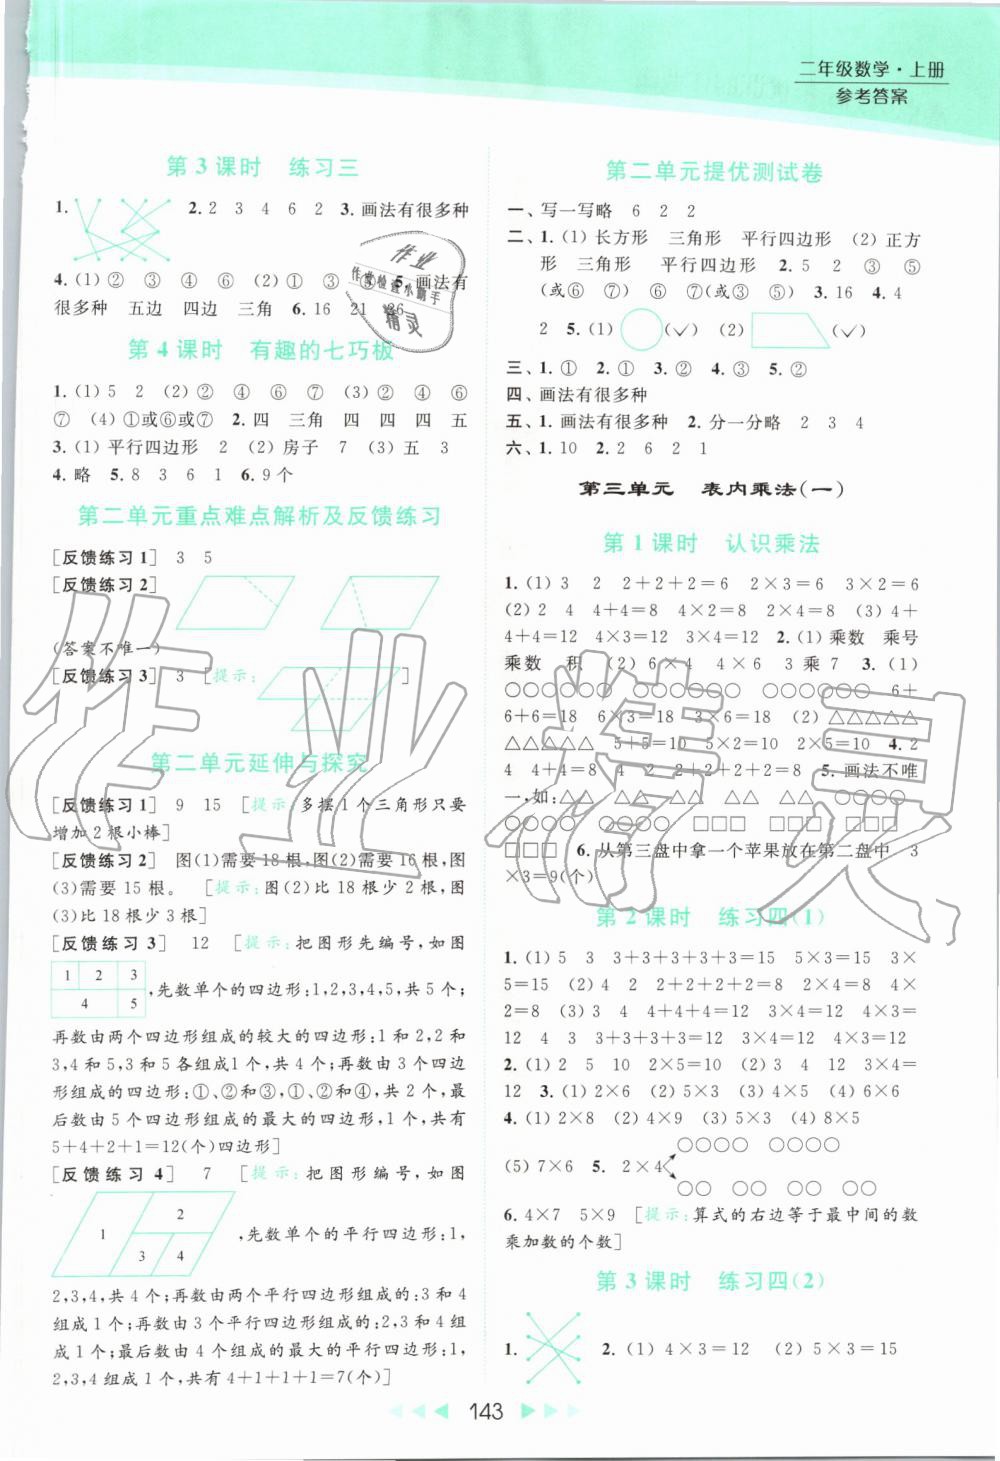 二年级数学·上册
参考答案
第3课时 练习三
1. 2. 2 3 4 6 2 3. 画法有很多种
4. (1)② ③ ④ ⑥ (2)① ③ ⑤ 5. 画法有
很多种 五边 四边 三角 6. 16 21 26
第4课时 有趣的七巧板
1. (1)5 2 (2)② ④ ⑥ ⑦ (3)② ④ ⑥
⑦ (4)①或⑥或⑦ 2. 四 三角 四 四 四 五
3. (1)平行四边形 2 (2)房子 7 (3)五 3
4. 略 5. 8 3 6 1 6. 9个
第二单元重点难点解析及反馈练习
[反馈练习1] 3 5
[反馈练习2]
(答案不唯一)
[反馈练习3] 3 [提示: ]
第二单元延伸与探究
[反馈练习1] 9 15 [提示:多摆1个三角形只要
增加2根小棒]
[反馈练习2] 图(1)需要18根,图(2)需要16根,图
(3)需要15根。 [提示:图(2)比18根少2根,图
(3)比18根少3根]
[反馈练习3] 12 [提示:把图形先编号,如图
1 2 3
4 5
,先数单个的四边形:1,2,3,4,5,共5个;
再数由两个四边形组成的较大的四边形:1和2,2和
3,4和5,3和5各组成1个,共4个;再数由3个四边
形组成的四边形:①、②和③,①、②和④,共2个,最
后数由5个四边形组成的最大的四边形,1个,共有
5+4+2+1=12(个)四边形]
[反馈练习4] 7 [提示:把图形编号,如图
1 2
3 4
,先数单个的平行四边形:1,
2,3,4,共4个;再数由两个平行四边形组成的:3和4
组成1个;再数由3个平行四边形组成的:2,3,4组成
1个;最后数由4个组成的最大的平行四边形:1,
2,3,4组成1个,共有4+1+1+1=7(个)]
第二单元提优测试卷
一、写一写略 6 2 2
二、1. (1)长方形 三角形 平行四边形 (2)正方
形 三角形 平行四边形 2. 5 2 ③ ⑤
(或⑥ ⑦) ② ④(或③ ⑤) 3. 16 4. 4
2 5. (1) (✓) (2) (✓)
三、1. ① 2. ① 3. ② 4. ③ 5. ②
四、画法有很多种
五、1. 画法有很多种 2. 分一分略 2 3 4
六、1. 10 2. 2 6 2 1
第三单元 表内乘法(一)
第1课时 认识乘法
1. (1)3 2 2+2+2=6 2×3=6 3×2=6
(2)2 4 4+4=8 4×2=8 2×4=8 (3)4+
4+4=12 4×3=12 3×4=12 2. (1)乘数 乘号
乘数 积 (2)6×4 4×6 3乘7 3. (1)
○○○○○○ ○○○○○○ ○○○○○○ 6+
6+6=18 6×3=18 3×6=18 (2)△△△△△
△△△△△ 5+5=10 5×2=10 2×5=10 4. 2
4 4+4=8 4 2 2+2+2+2=8 5. 画法不唯
一,如:△△ △△ △△ △△ ○○○○
○○○○ ○○○○ □□□ □□□ □□□
□□□ 6. 从第三盘中拿一个苹果放在第二盘中 3
×3=9(个)
第2课时 练习四(1)
1. (1)5 3 3+3+3+3+3=15 5×3=15 3×
5=15 (2)4 2 2+2+2+2=8 2×4=8 4×
2=8 (3)3 4 4+4+4=12 3×4=12 4×3=
12 4 3 3+3+3+3=12 3×4=12 4×3=12
2. (1)2 5 10 2×5=10 (2)3 4 12 3×4=
12 3. (1)2×6 (2)5×3 (3)4×5 (4)6×6
4. (1)2×8 (2)4×9 (3)5×3 (4)8×5
○○○○ ○○○○
(5)7×6 5. 2×4
○○ ○○ ○○ ○○
6. 4×7 5×9 [提示:算式的右边等于最中间的数
乘加数的个数]
第3课时 练习四(2)
1. 2. (1)4×3=12 (2)5×3=15
143
作业
作业检查小助手
精灵
作业精灵